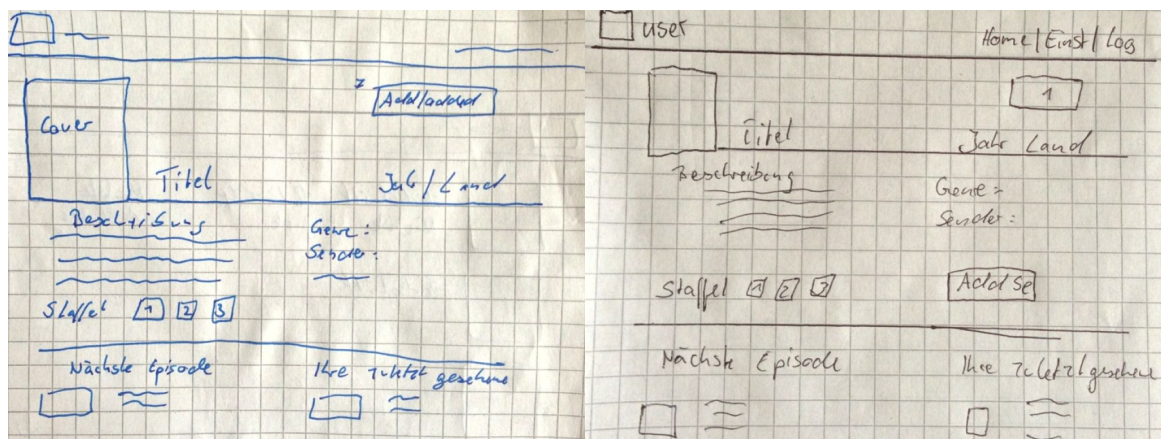 Add/added
Cover
Titel
Jahr/Land
Beschreibung
Genre:
Sender:
Staffel 1 2 3
Nächste Episode
Ihre zuletzt gesehene
user
Home | Einst | Log
1
Titel
Jahr Land
Beschreibung
Genre:
Sender:
Staffel 1 2 3
Add Se
Nächste Episode
Ihre zuletzt gesehene